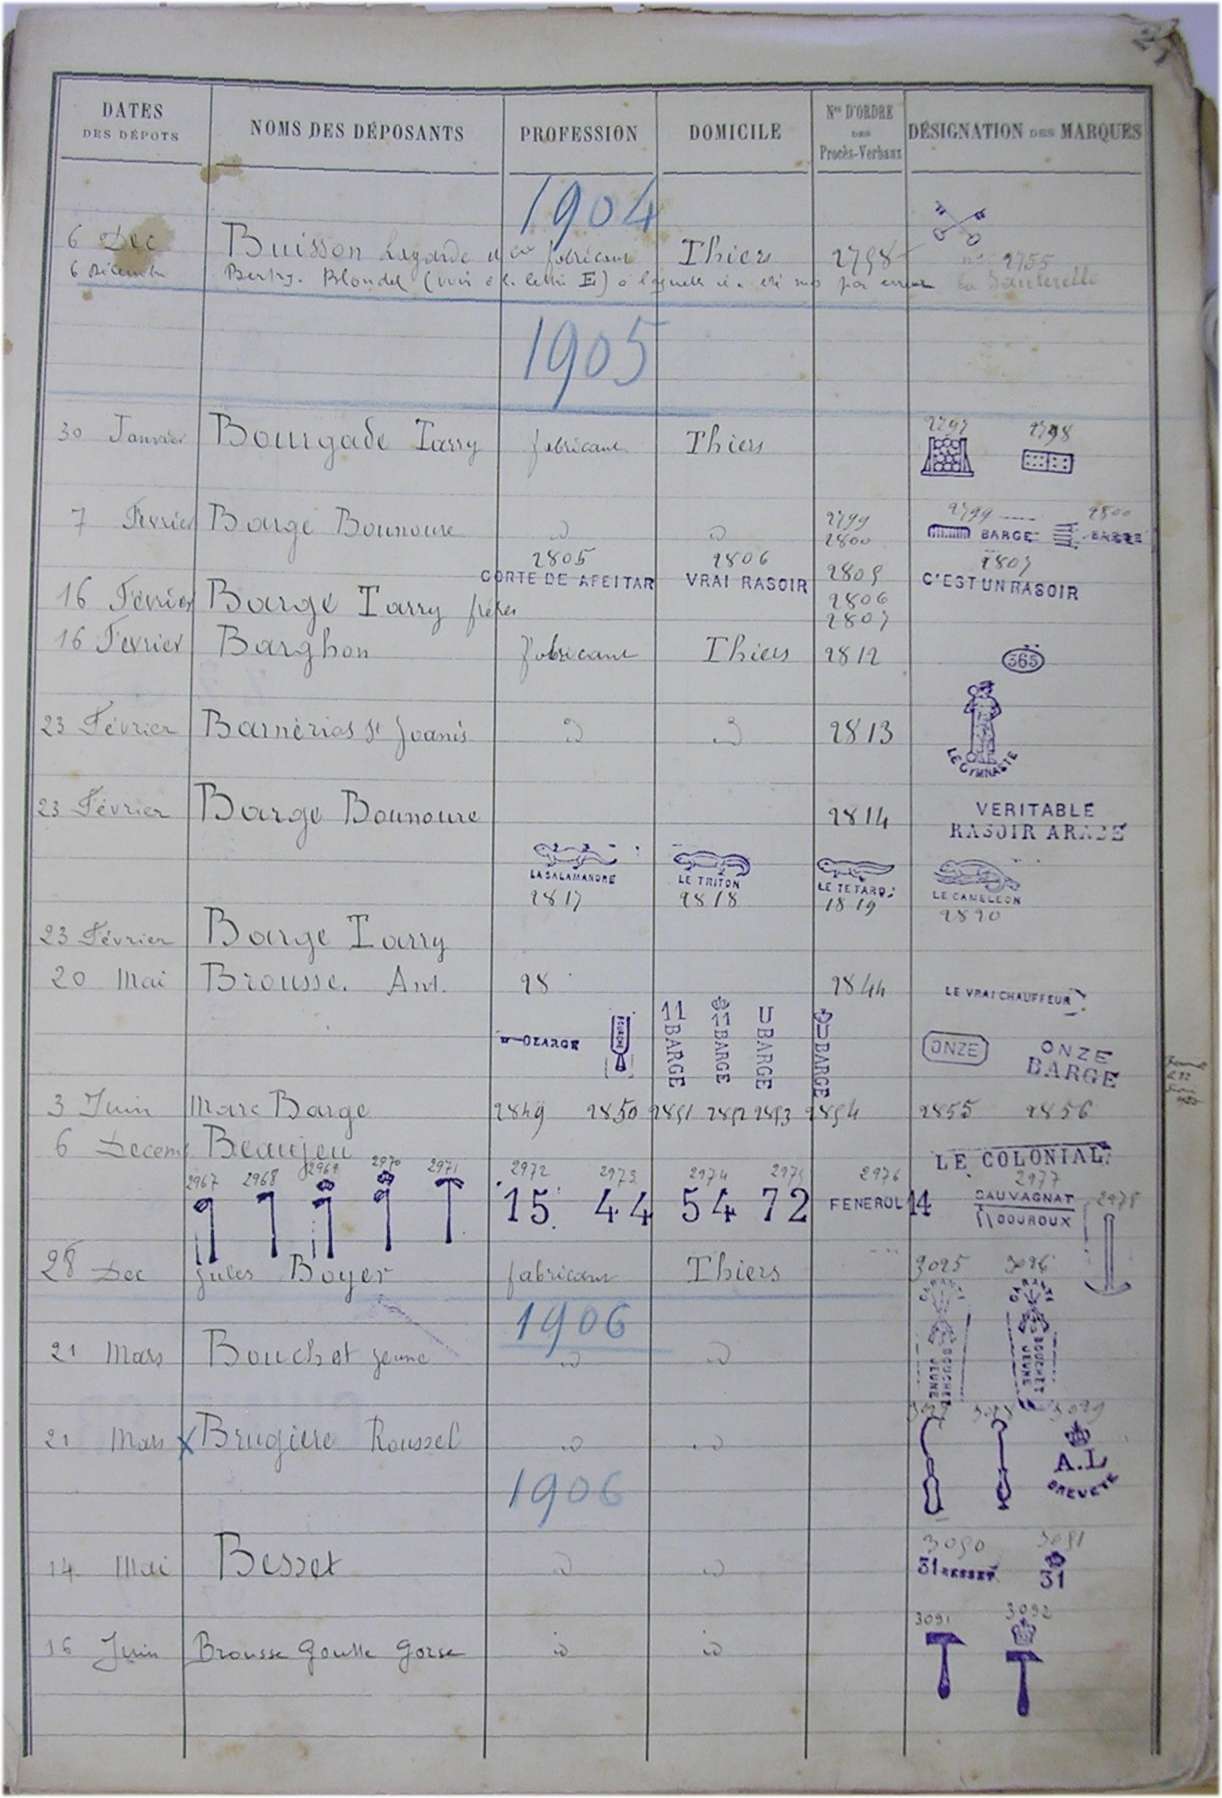 DATES DES DÉPOTS NOMS DES DÉPOSANTS PROFESSION DOMICILE Nos D'ORDRE DES Procès-Verbaux DÉSIGNATION DES MARQUES
1904
6 Dec Buisson Lagarde fabricant Thiers 2758
2755
6 Décembre Blondel (voir à la lettre E) à laquelle il a été mis par erreur la Sauterelle
1905
2797 2798
30 Janvier Bourgade Tarry fabricant Thiers
2799 2800
7 Fevrier Barge Bounoure d d 2799 BARGE BARGE
2800
2805 2806 2807
CORTE DE AFEITAR VRAI RASOIR 2805 C'EST UN RASOIR
16 Fevrier Barge Tarry frères 2806
2807
16 Fevrier Barghon fabricant Thiers 2812 365
23 Février Barnérias St Joanis d d 2813
LE GYMNASTE
23 Février Barge Bounoure 2814 VERITABLE
RASOIR ARABE
LA SALAMANDRE LE TRITON LE TETARD LE CAMELEON
2817 2818 1819 2820
23 Février Barge Tarry
20 Mai Brousse. Ant. 28 2844 LE VRAI CHAUFFEUR
11 BARGE 11 BARGE U BARGE U BARGE ONZE ONZE
BARGE
3 Juin Marc Barge 2849 2850 2851 2852 2853 2854 2855 2856
6 Decem Beaujeu LE COLONIAL
2967 2968 2969 2970 2971 2972 2973 2974 2975 2976 2977 2978
15 44 54 72 FENEROL 14 SAUVAGNAT
DOUROUX
28 Dec Jules Boyer fabricant Thiers 3025 3026
1906
21 Mars Bouchet jeune d d BOUCHET JEUNE BOUCHET JEUNE
3028 3029
21 Mars x Brugière Roussel d d A.L
BREVETÉ
1906
3050 3051
14 Mai Besset d d 31 BESSET 31
3091 3092
16 Juin Brousse Goutte Gorse d d